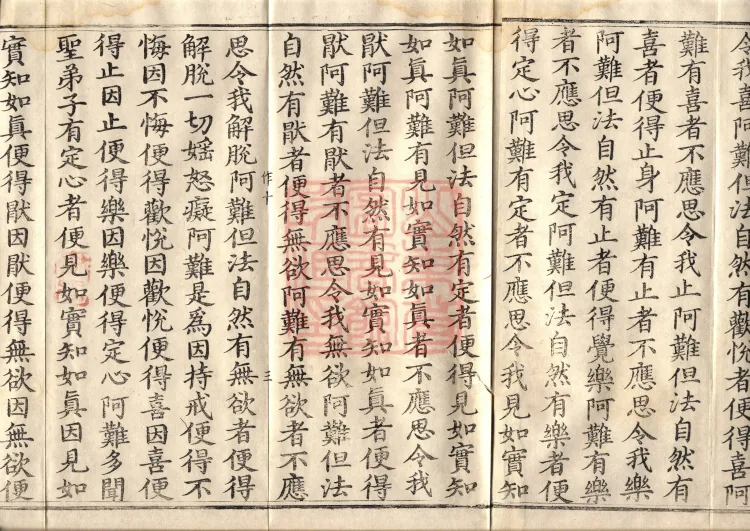 令我喜阿難但法自然有歡悅者便得喜阿
難有喜者不應思令我止阿難但法自然有
喜者便得止身阿難有止者不應思令我樂
阿難但法自然有止者便得覺樂阿難有樂
者不應思令我定阿難但法自然有樂者便
得定心阿難有定者不應思令我見如實知
如真阿難但法自然有定者便得見如實知
如真阿難有見如實知如真者不應思令我
猒阿難但法自然有見如實知如真者便得
猒阿難有猒者不應思令我無欲阿難但法
自然有猒者便得無欲阿難有無欲者不應
作十
三
思令我解脫阿難但法自然有無欲者便得
解脫一切婬怒癡阿難是為因持戒便得不
悔因不悔便得歡悅因歡悅便得喜因喜便
得止因止便得樂因樂便得定心阿難多聞
聖弟子有定心者便見如實知如真因見如
實知如真便得猒因猒便得無欲因無欲便